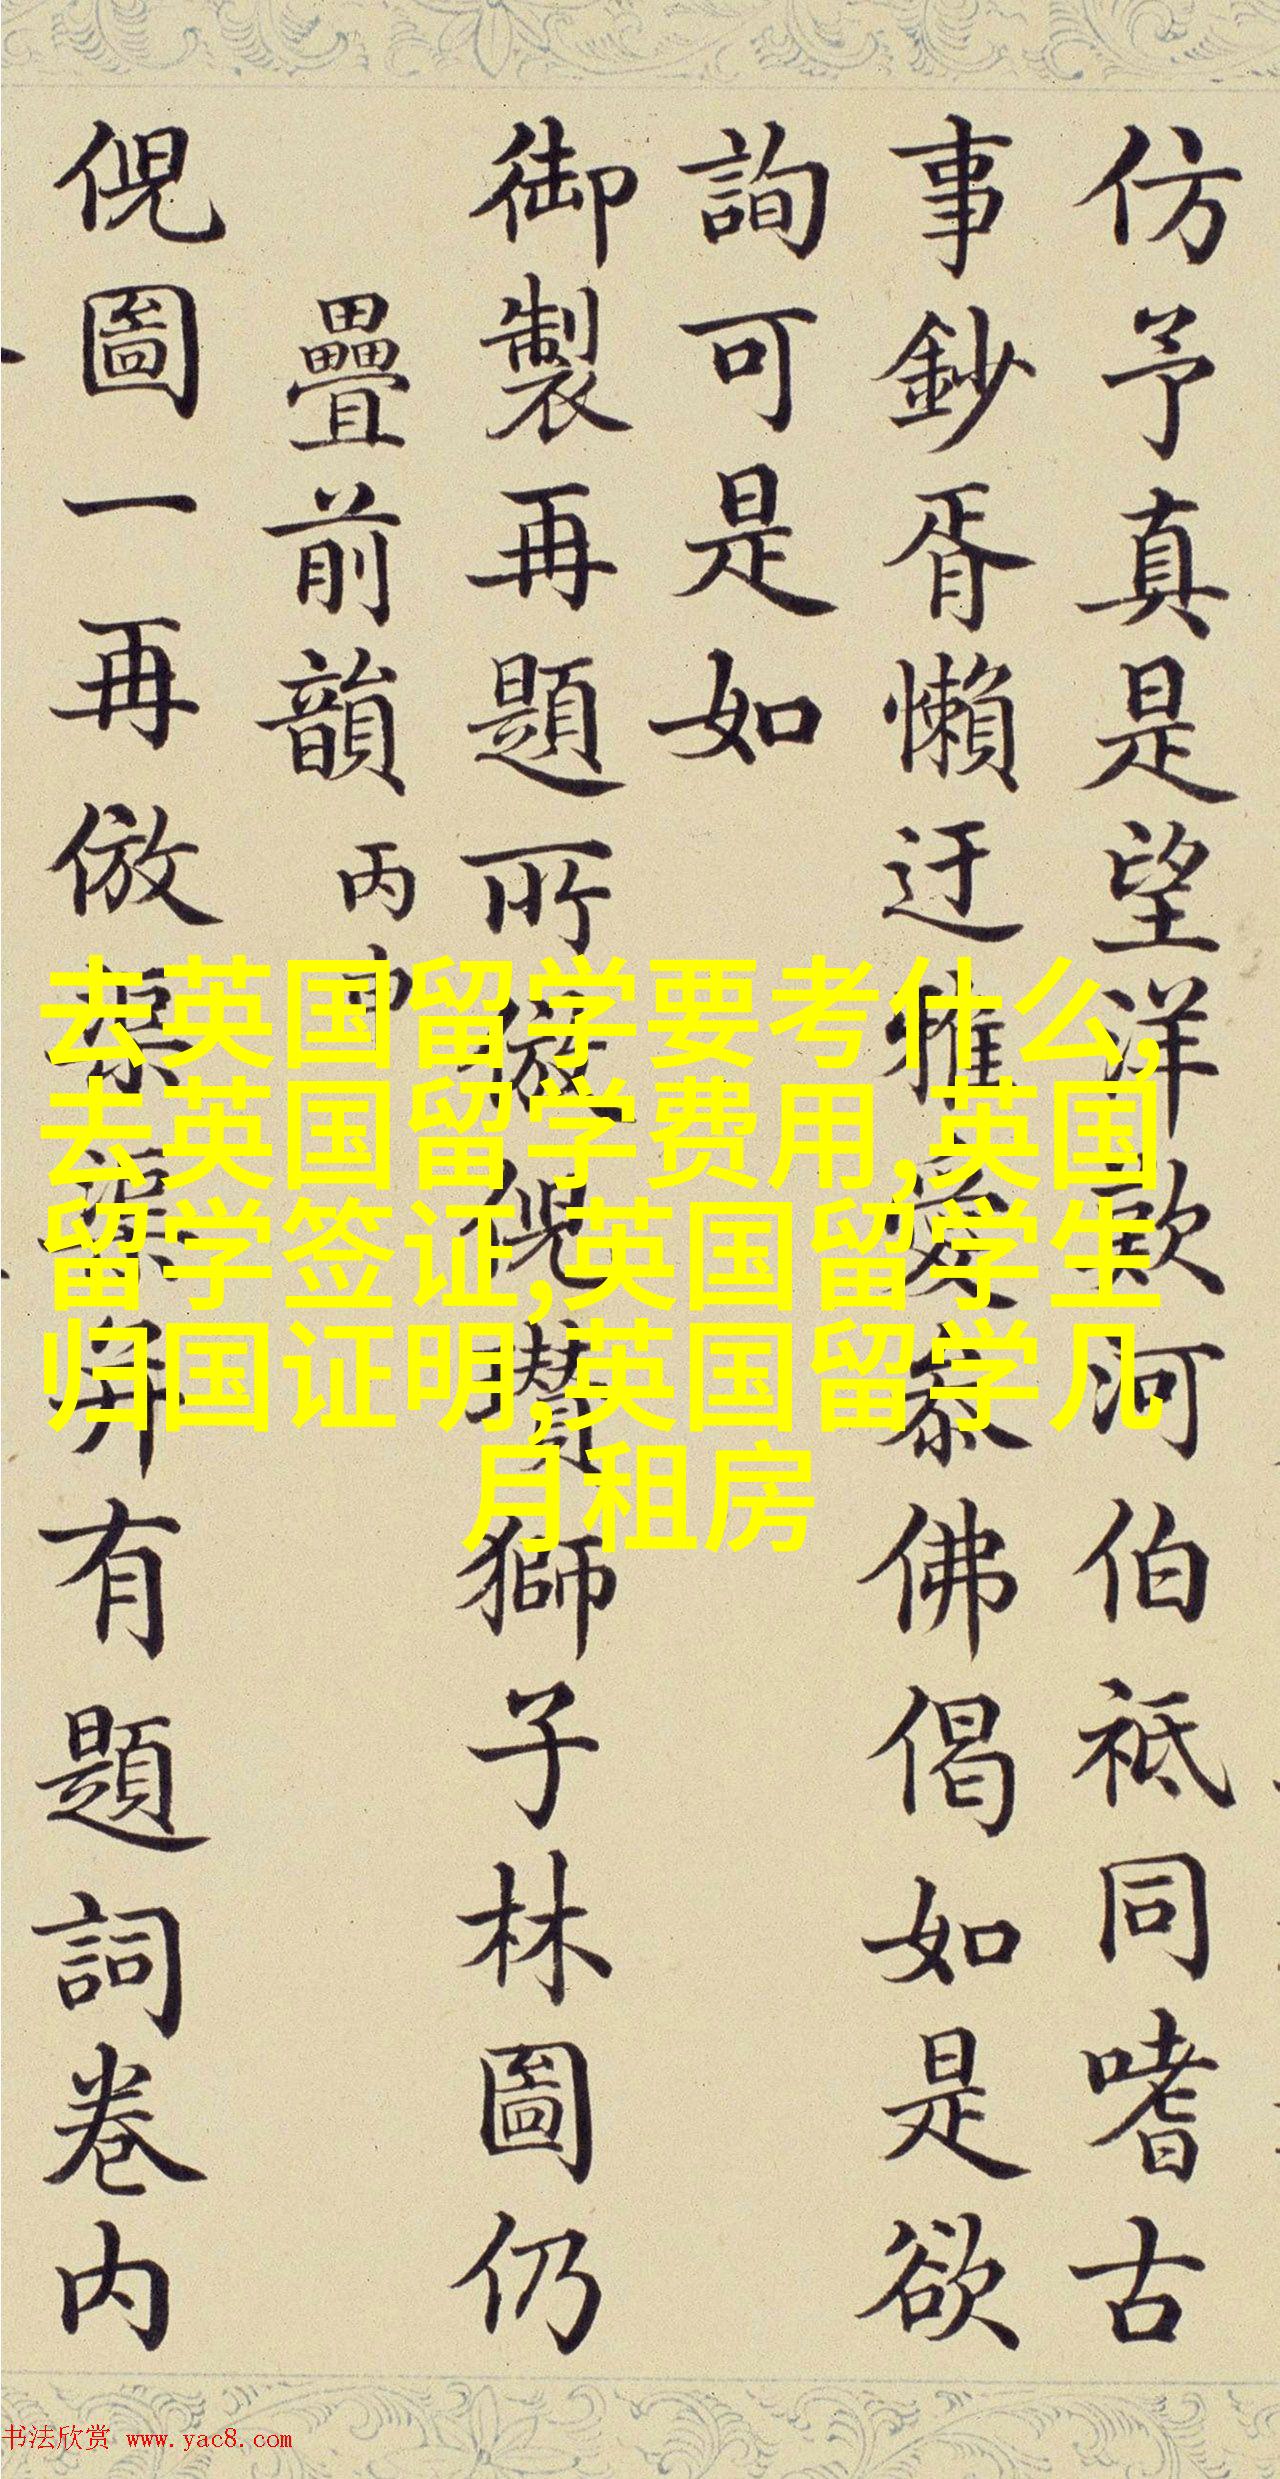 仿予真是望洋歎河伯祗同嗜古
事鈔胥懶迂雅佛偈如是欲
詢可是如
御製再題所倣倪瓚獅子林圖仍
疊前韻丙申
倪圖一再倣有題詞卷内
去英国留学要考什么,
去英国留学费用,英国
留学签证,英国留学生
归国证明,英国留学几
月租房
书法欣赏 www.yac8.com